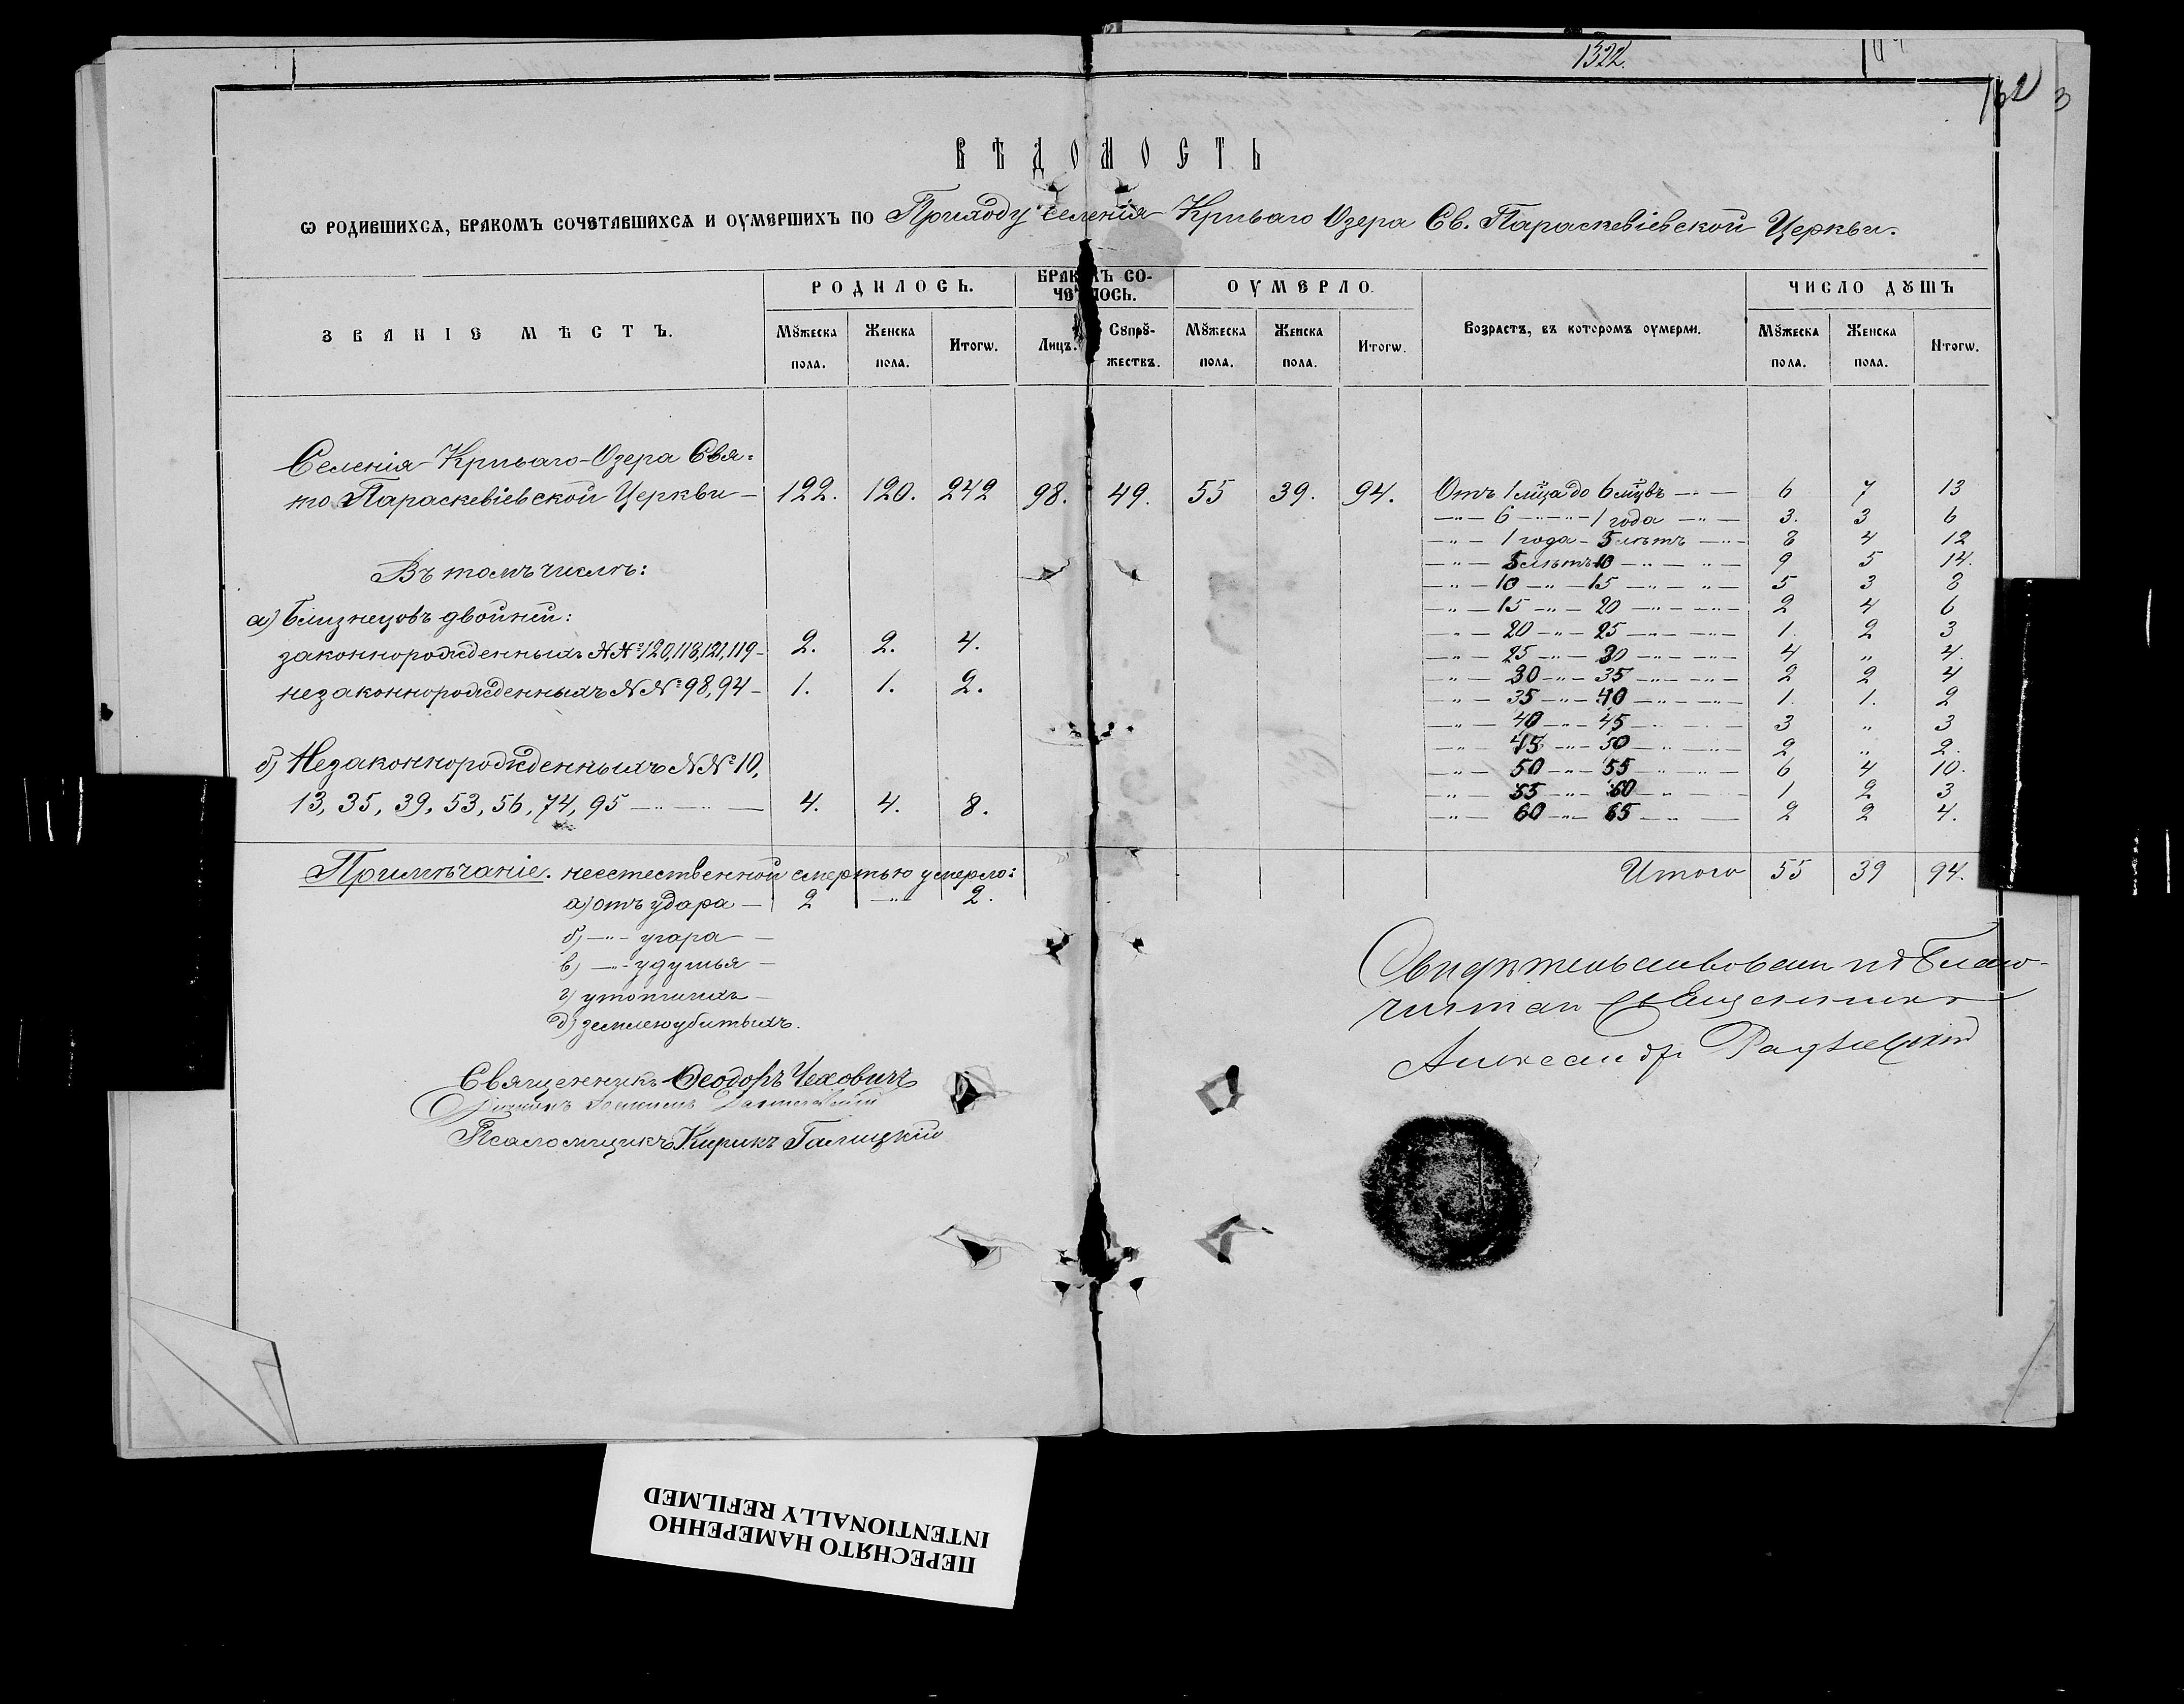 1322.
162
3
ВѢДОМОСТЬ
Ѡ РОДИВШИХСѦ, БРАКОМЪ СОЧЕТАВШИХСѦ И ОУМЕРШИХЪ ПО Приходу селенія Криваго Озера Св. Параскевіевской Церкви.
ЗВАНІЕ МѢСТЪ.
РОДИЛОСЬ.
БРАКОМЪ СО-
ЧЕТАЛОСЬ.
ОУМЕРЛО.
Возрастъ, въ которомъ оумерли.
ЧИСЛО ДꙊШЪ
Мꙋжеска пола. Женска пола. Итогѡ. Лицъ. Сꙋпрꙋ-жествъ. Мꙋжеска пола. Женска пола. Итогѡ. Мꙋжеска пола. Женска пола. Итогѡ.
Селенія Криваго-Озера Свя-
то Параскевіевской Церкви — 122. 120. 242 98. 49. 55 39. 94.
Въ томъ числѣ:
а) близнецовъ двойни:
законнорожденныхъ №№ 120, 118, 121, 119 — 2. 2. 4.
незаконнорожденныхъ №№ 98, 94 — 1. 1. 2.
б) Незаконнорожденныхъ №№ 10,
13, 35, 39, 53, 56, 74, 95 — " — " — 4. 4. 8.
Отъ 1 мѣца до 6 мѣцвъ — " — 6 7 13
— " — 6 — " — " — 1 года — " — 3. 3 6
— " — 1 года — 5 лѣтъ — " — 8 4 12
— " — 5 лѣтъ 10 — " — " — 9 5 14.
— " — 10 — " — 15 — " — " — 5 3 8
— " — 15 — " — 20 — " — " — 2 4 6
— " — 20 — " — 25 — " — " — 1. 2 3
— " — 25 — " — 30 — " — " — 4 " 4.
— " — 30 — " — 35 — " — " — 2 2 4
— " — 35 — " — 40 — " — " — 1. 1. 2
— " — 40 — " — 45 — " — " — 3 " 3
— " — 45 — " — 50 — " — " — 2 " 2.
— " — 50 — " — 55 — " — " — 6 4 10.
— " — 55 — " — 60 — " — " — 1 2 3
— " — 60 — " — 65 — " — 2 2 4.
Итого 55 39 94.
Примѣчаніе. неестественной смертью умерло:
а) отъ удара — 2 — " — 2.
б) — " — угара —
в) — " — удушья —
г) утопшихъ —
д) землею убитыхъ.
Священникъ Ѳеодоръ Чеховичъ
Псаломщикъ Кирикъ Галицкій
Свидѣтельствовалъ Благо-
чинный Священникъ
Александръ
ПЕРЕСНЯТО НАМЕРЕННО
INTENTIONALLY REFILMED